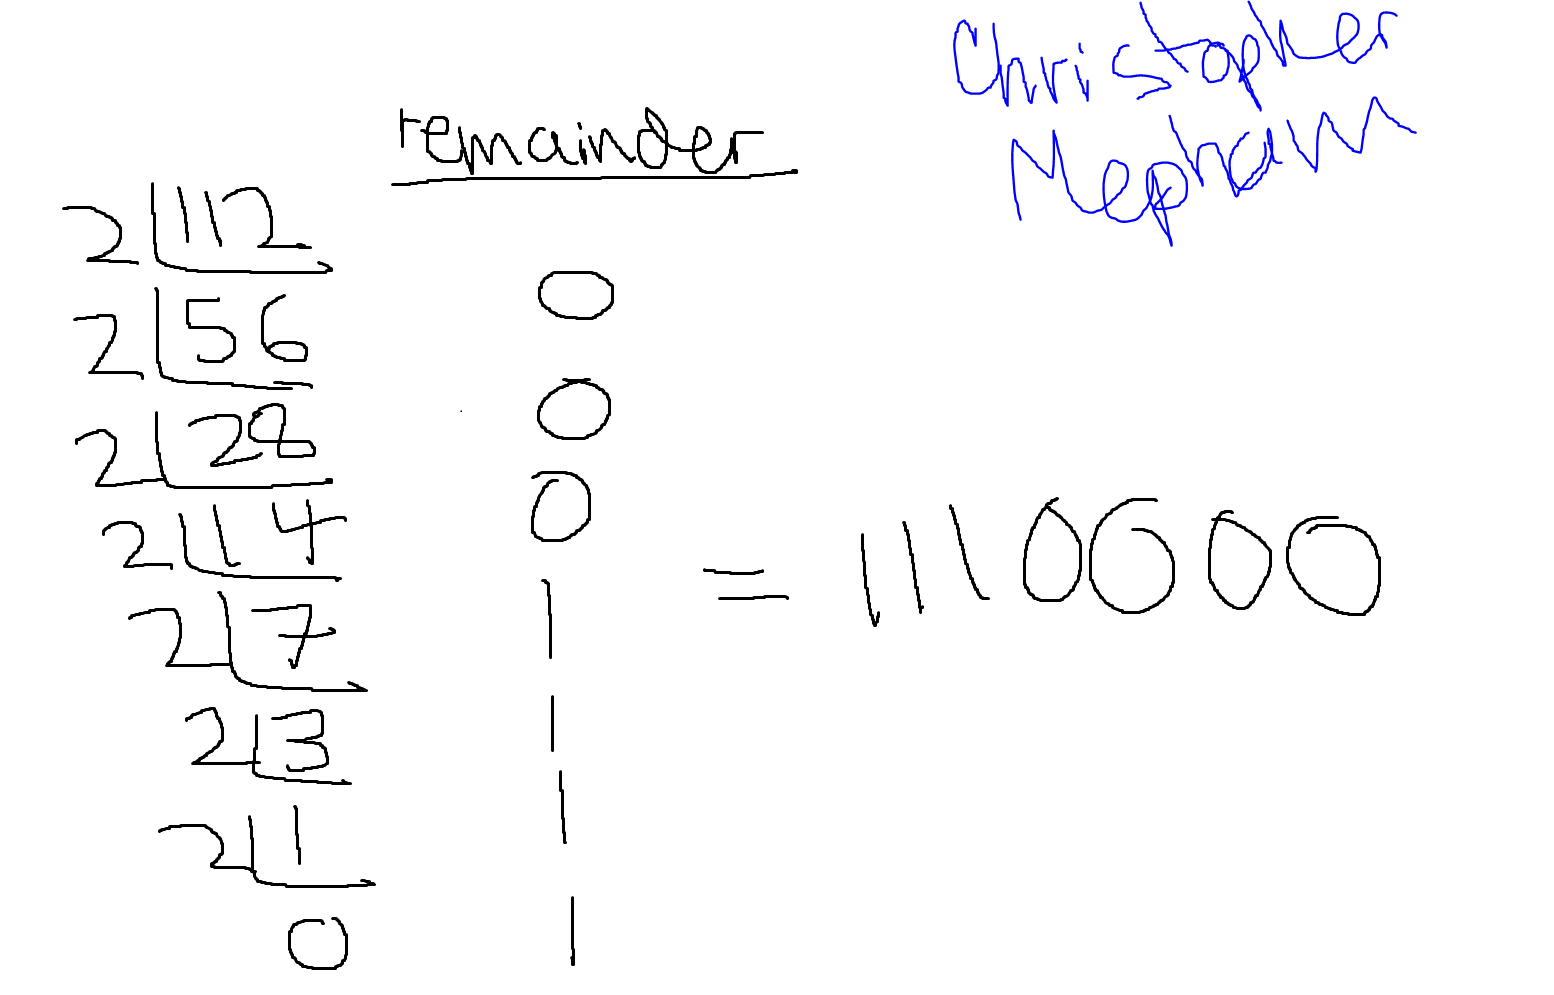 Christopher
Mepham
remainder
2 112
2 56 0
2 28 0
2 14 0
2 7 1
2 3 1
2 1 1
0 1
= 1110000